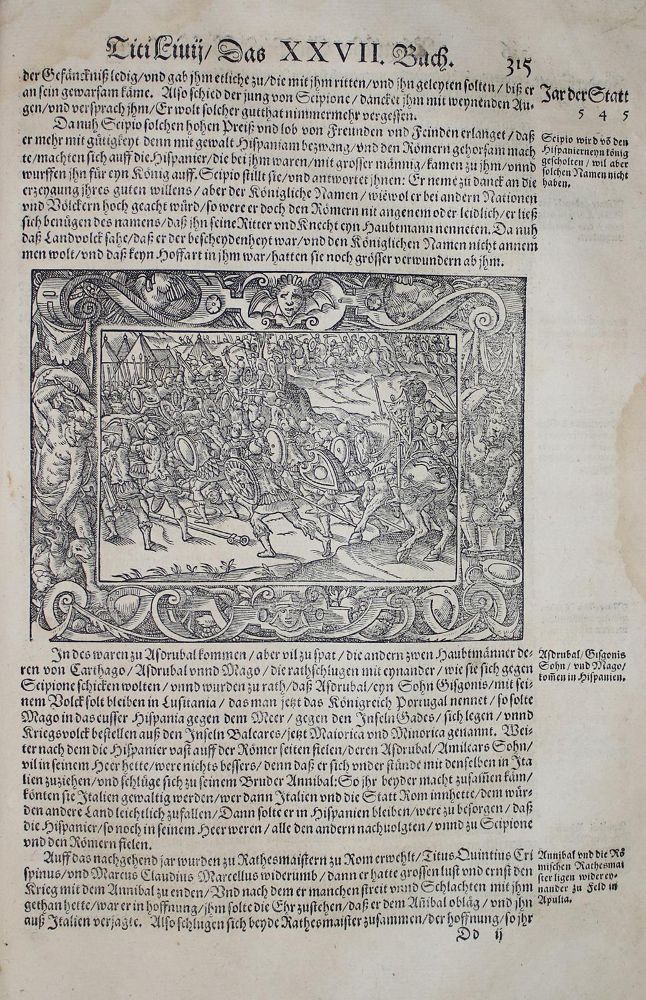 Titi Livij / Das XXVII. Buch. 315
der Gefänckniß ledig / vnd gab jhm etliche zu / die mit jhm ritten / vnd jhn geleyten solten / biß er
an sein gewarsam käme. Also schied der jung von Scipione / dancket jhm mit weynenden Au-
gen / vnd versprach jhm / Er wolt solcher gutthat nimmermehr vergessen.
Da nuh Scipio solchen hohen Preiß vnd lob von Freunden vnd Feinden erlanget / daß
er mehr mit gütigkeyt denn mit gewalt Hispaniam bezwang / vnd den Römern gehorsam mach
te / machten sich auff die Hispanier / die bei jhm waren / mit grosser männig / kamen zu jhm / vnnd
wurffen jhn für eyn König auff. Scipio stillt sie / vnd antwortet jhnen: Er neme zu danck an die
erzeygung jhres guten willens / aber der Königliche Namen / wiewol er bei andern Nationen
vnd Völckern hoch geacht würd / so were er doch den Römern nit angenem oder leidlich / er ließ
sich benügen des namens / daß jhn seine Ritter vnd Knecht eyn Haubtmann nenneten. Da nuh
daß Landvolck sahe / daß er der bescheydenheyt war / vnd den Königlichen Namen nicht annem
men wolt / vnd daß keyn Hoffart in jhm war / hatten sie noch grösser verwundern ab jhm.
Jar der Statt
5 4 5
Scipio wird vō den
Hispanierneyn König
gescholten / wil aber
solchen Namen nicht
haben.
In des waren zu Asdrubal kommen / aber vil zu spat / die andern zwen Haubtmänner de-
ren von Carthago / Asdrubal vnnd Mago / die rathschlugen mit eynander / wie sie sich gegen
Scipione schicken wolten / vnnd wurden zu rath / daß Asdrubal / eyn Sohn Gisgonis / mit sei-
nem Volck solt bleiben in Lusitania / das man jetzt das Königreich Portugal nennet / so solte
Mago in das eusser Hispania gegen dem Meer / gegen den Inseln Gades / sich legen / vnnd
Kriegsvolck bestellen auß den Inseln Baleares / jetzt Maiorica vnd Minorica genannt. Wei-
ter nach dem die Hispanier vast auff der Römer seiten fielen / deren Asdrubal / Amilcars Sohn /
vil in seinem Heer hette / were nichts bessers / denn daß er sich vnder stünde mit denselben in Ita
lien zuziehen / vnd schlüge sich zu seinem Bruder Annibal: So jhr beyder macht zusam̄en käm /
könten sie Italien gewaltig werden / wer dann Italien vnd die Statt Rom innhette / dem wür-
den andere Land leichtlich zufallen / Dann solte er in Hispanien bleiben / were zu besorgen / daß
die Hispanier / so noch in seinem Heer weren / alle den andern nachuolgten / vnnd zu Scipione
vnd den Römern fielen.
Asdrubal / Gisgonis
Sohn / vnd Mago /
kom̄en in Hispanien.
Auff das nachgehend jar wurden zu Rathesmaistern zu Rom erwehlt / Titus Quintius Cri
spinus / vnd Marcus Claudius Marcellus widerumb / dann er hatte grossen lust vnd ernst den
Krieg mit dem Annibal zu enden / Vnd nach dem er manchen streit vnnd Schlachten mit jhm
gethan hette / war er in hoffnung / jhm solte die Ehr zustehen / daß er dem Añibal obläg / vnd jhn
auß Italien verjagte. Also schlugen sich beyde Rathesmaister zusammen / der hoffnung / so jhr
Annibal vnd die Rö
mischen Rathesmai
ster ligen widerey-
nander zu Feld in
Apulia.
Dd ij